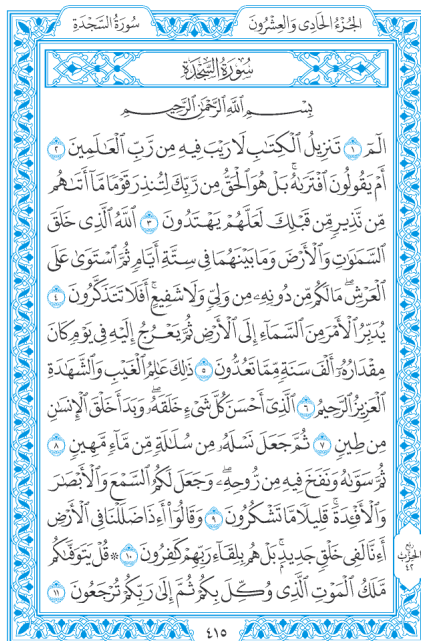 سُورَةُ السَّجۡدَةِ الجُزۡءُ الحَادِى وَالعِشۡرُونَ
سُورَةُ السَّجۡدَةِ
بِسۡمِ ٱللَّهِ ٱلرَّحۡمَٰنِ ٱلرَّحِيمِ
الٓمٓ ١ تَنزِيلُ ٱلۡكِتَٰبِ لَا رَيۡبَ فِيهِ مِن رَّبِّ ٱلۡعَٰلَمِينَ ٢
أَمۡ يَقُولُونَ ٱفۡتَرَىٰهُۚ بَلۡ هُوَ ٱلۡحَقُّ مِن رَّبِّكَ لِتُنذِرَ قَوۡمٗا مَّآ أَتَىٰهُم
مِّن نَّذِيرٖ مِّن قَبۡلِكَ لَعَلَّهُمۡ يَهۡتَدُونَ ٣ ٱللَّهُ ٱلَّذِي خَلَقَ
ٱلسَّمَٰوَٰتِ وَٱلۡأَرۡضَ وَمَا بَيۡنَهُمَا فِي سِتَّةِ أَيَّامٖ ثُمَّ ٱسۡتَوَىٰ عَلَى
ٱلۡعَرۡشِۖ مَا لَكُم مِّن دُونِهِۦ مِن وَلِيّٖ وَلَا شَفِيعٍۚ أَفَلَا تَتَذَكَّرُونَ ٤
يُدَبِّرُ ٱلۡأَمۡرَ مِنَ ٱلسَّمَآءِ إِلَى ٱلۡأَرۡضِ ثُمَّ يَعۡرُجُ إِلَيۡهِ فِي يَوۡمٖ كَانَ
مِقۡدَارُهُۥٓ أَلۡفَ سَنَةٖ مِّمَّا تَعُدُّونَ ٥ ذَٰلِكَ عَٰلِمُ ٱلۡغَيۡبِ وَٱلشَّهَٰدَةِ
ٱلۡعَزِيزُ ٱلرَّحِيمُ ٦ ٱلَّذِيٓ أَحۡسَنَ كُلَّ شَيۡءٍ خَلَقَهُۥۖ وَبَدَأَ خَلۡقَ ٱلۡإِنسَٰنِ
مِن طِينٖ ٧ ثُمَّ جَعَلَ نَسۡلَهُۥ مِن سُلَٰلَةٖ مِّن مَّآءٖ مَّهِينٖ ٨
ثُمَّ سَوَّىٰهُ وَنَفَخَ فِيهِ مِن رُّوحِهِۦۖ وَجَعَلَ لَكُمُ ٱلسَّمۡعَ وَٱلۡأَبۡصَٰرَ
وَٱلۡأَفۡـِٔدَةَۚ قَلِيلٗا مَّا تَشۡكُرُونَ ٩ وَقَالُوٓاْ أَءِذَا ضَلَلۡنَا فِي ٱلۡأَرۡضِ
أَءِنَّا لَفِي خَلۡقٖ جَدِيدِۭۚ بَلۡ هُم بِلِقَآءِ رَبِّهِمۡ كَٰفِرُونَ ١٠ ۞ قُلۡ يَتَوَفَّىٰكُم
مَّلَكُ ٱلۡمَوۡتِ ٱلَّذِي وُكِّلَ بِكُمۡ ثُمَّ إِلَىٰ رَبِّكُمۡ تُرۡجَعُونَ ١١
ربع
الحزب
٤٢
٤١٥